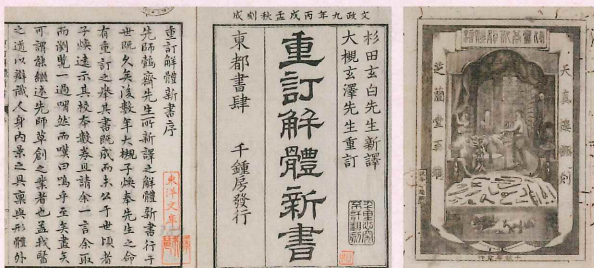 天真樓
芝蘭堂
文政九年丙戌孟秋刻成
杉田玄白先生新譯
大槻玄澤先生重訂
重訂解體新書
東都書肆 千鍾房發行
重訂解體新書序
先師鷧齋先生所新譯之解體新書行于
世既久矣後數年大槻子煥奉先生之命
有重訂之舉其書既成而未公于世頃者
子煥遠示其校本數卷且請余一言余取
而瀏覽一過喟然而嘆曰嗚乎至矣盡矣
可謂能繼述先師草創之業者也蓋我醫
之道以辯識人身內景之具稟與形體外
東洋文庫